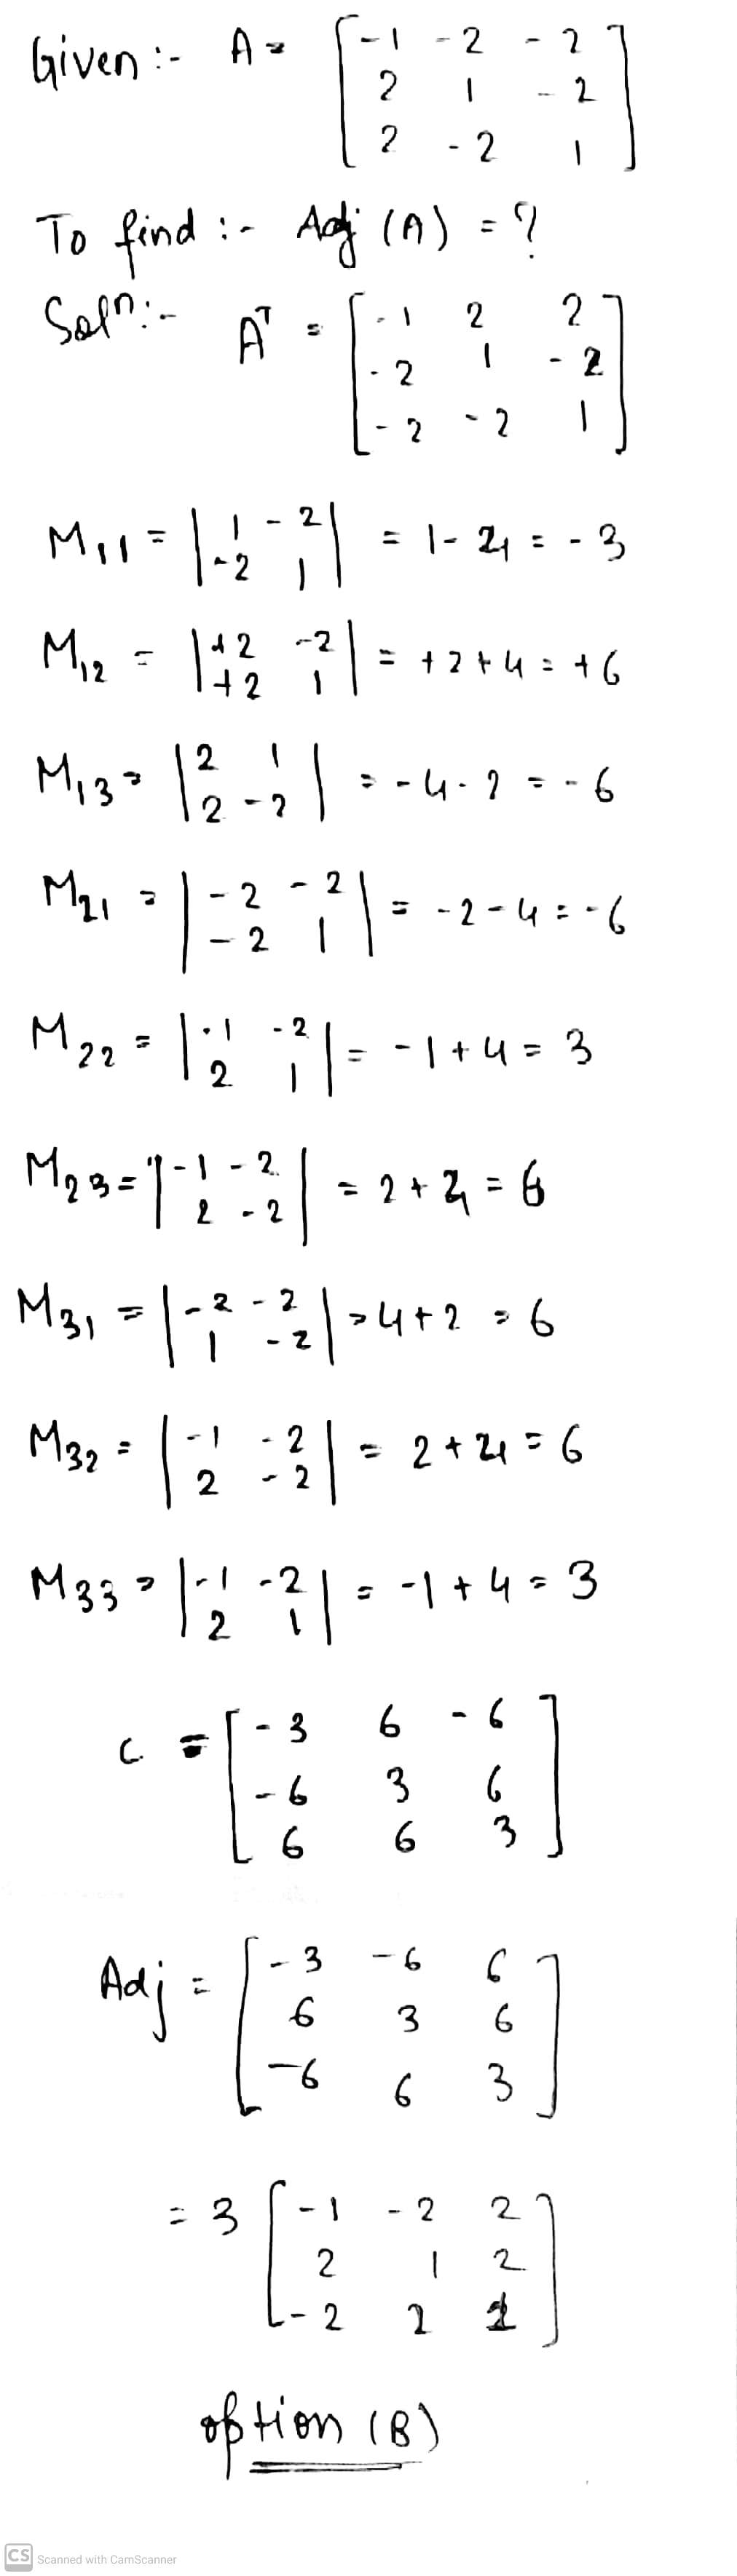 Given :- A = [ -1 -2 -2
2 1 -2
2 -2 1 ]
To find :- Adj (A) = ?
Soln :- Aᵀ = [ -1 2 2
-2 1 -2
-2 -2 1 ]
M11 = | 1 -2
-2 1 | = 1 - 4 = -3
M12 = | +2 -2
+2 1 | = +2 + 4 = +6
M13 = | 2 1
2 -2 | = -4 - 2 = -6
M21 = | -2 -2
-2 1 | = -2 - 4 = -6
M22 = | -1 -2
2 1 | = -1 + 4 = 3
M23 = | -1 -2
2 -2 | = 2 + 4 = 6
M31 = | -2 -2
1 -2 | = 4 + 2 = 6
M32 = | -1 -2
2 -2 | = 2 + 4 = 6
M33 = | -1 -2
2 1 | = -1 + 4 = 3
C = [ -3 6 -6
-6 3 6
6 6 3 ]
Adj = [ -3 -6 6
6 3 6
-6 6 3 ]
= 3 [ -1 -2 2
2 1 2
-2 2 1 ]
option (B)
CS Scanned with CamScanner